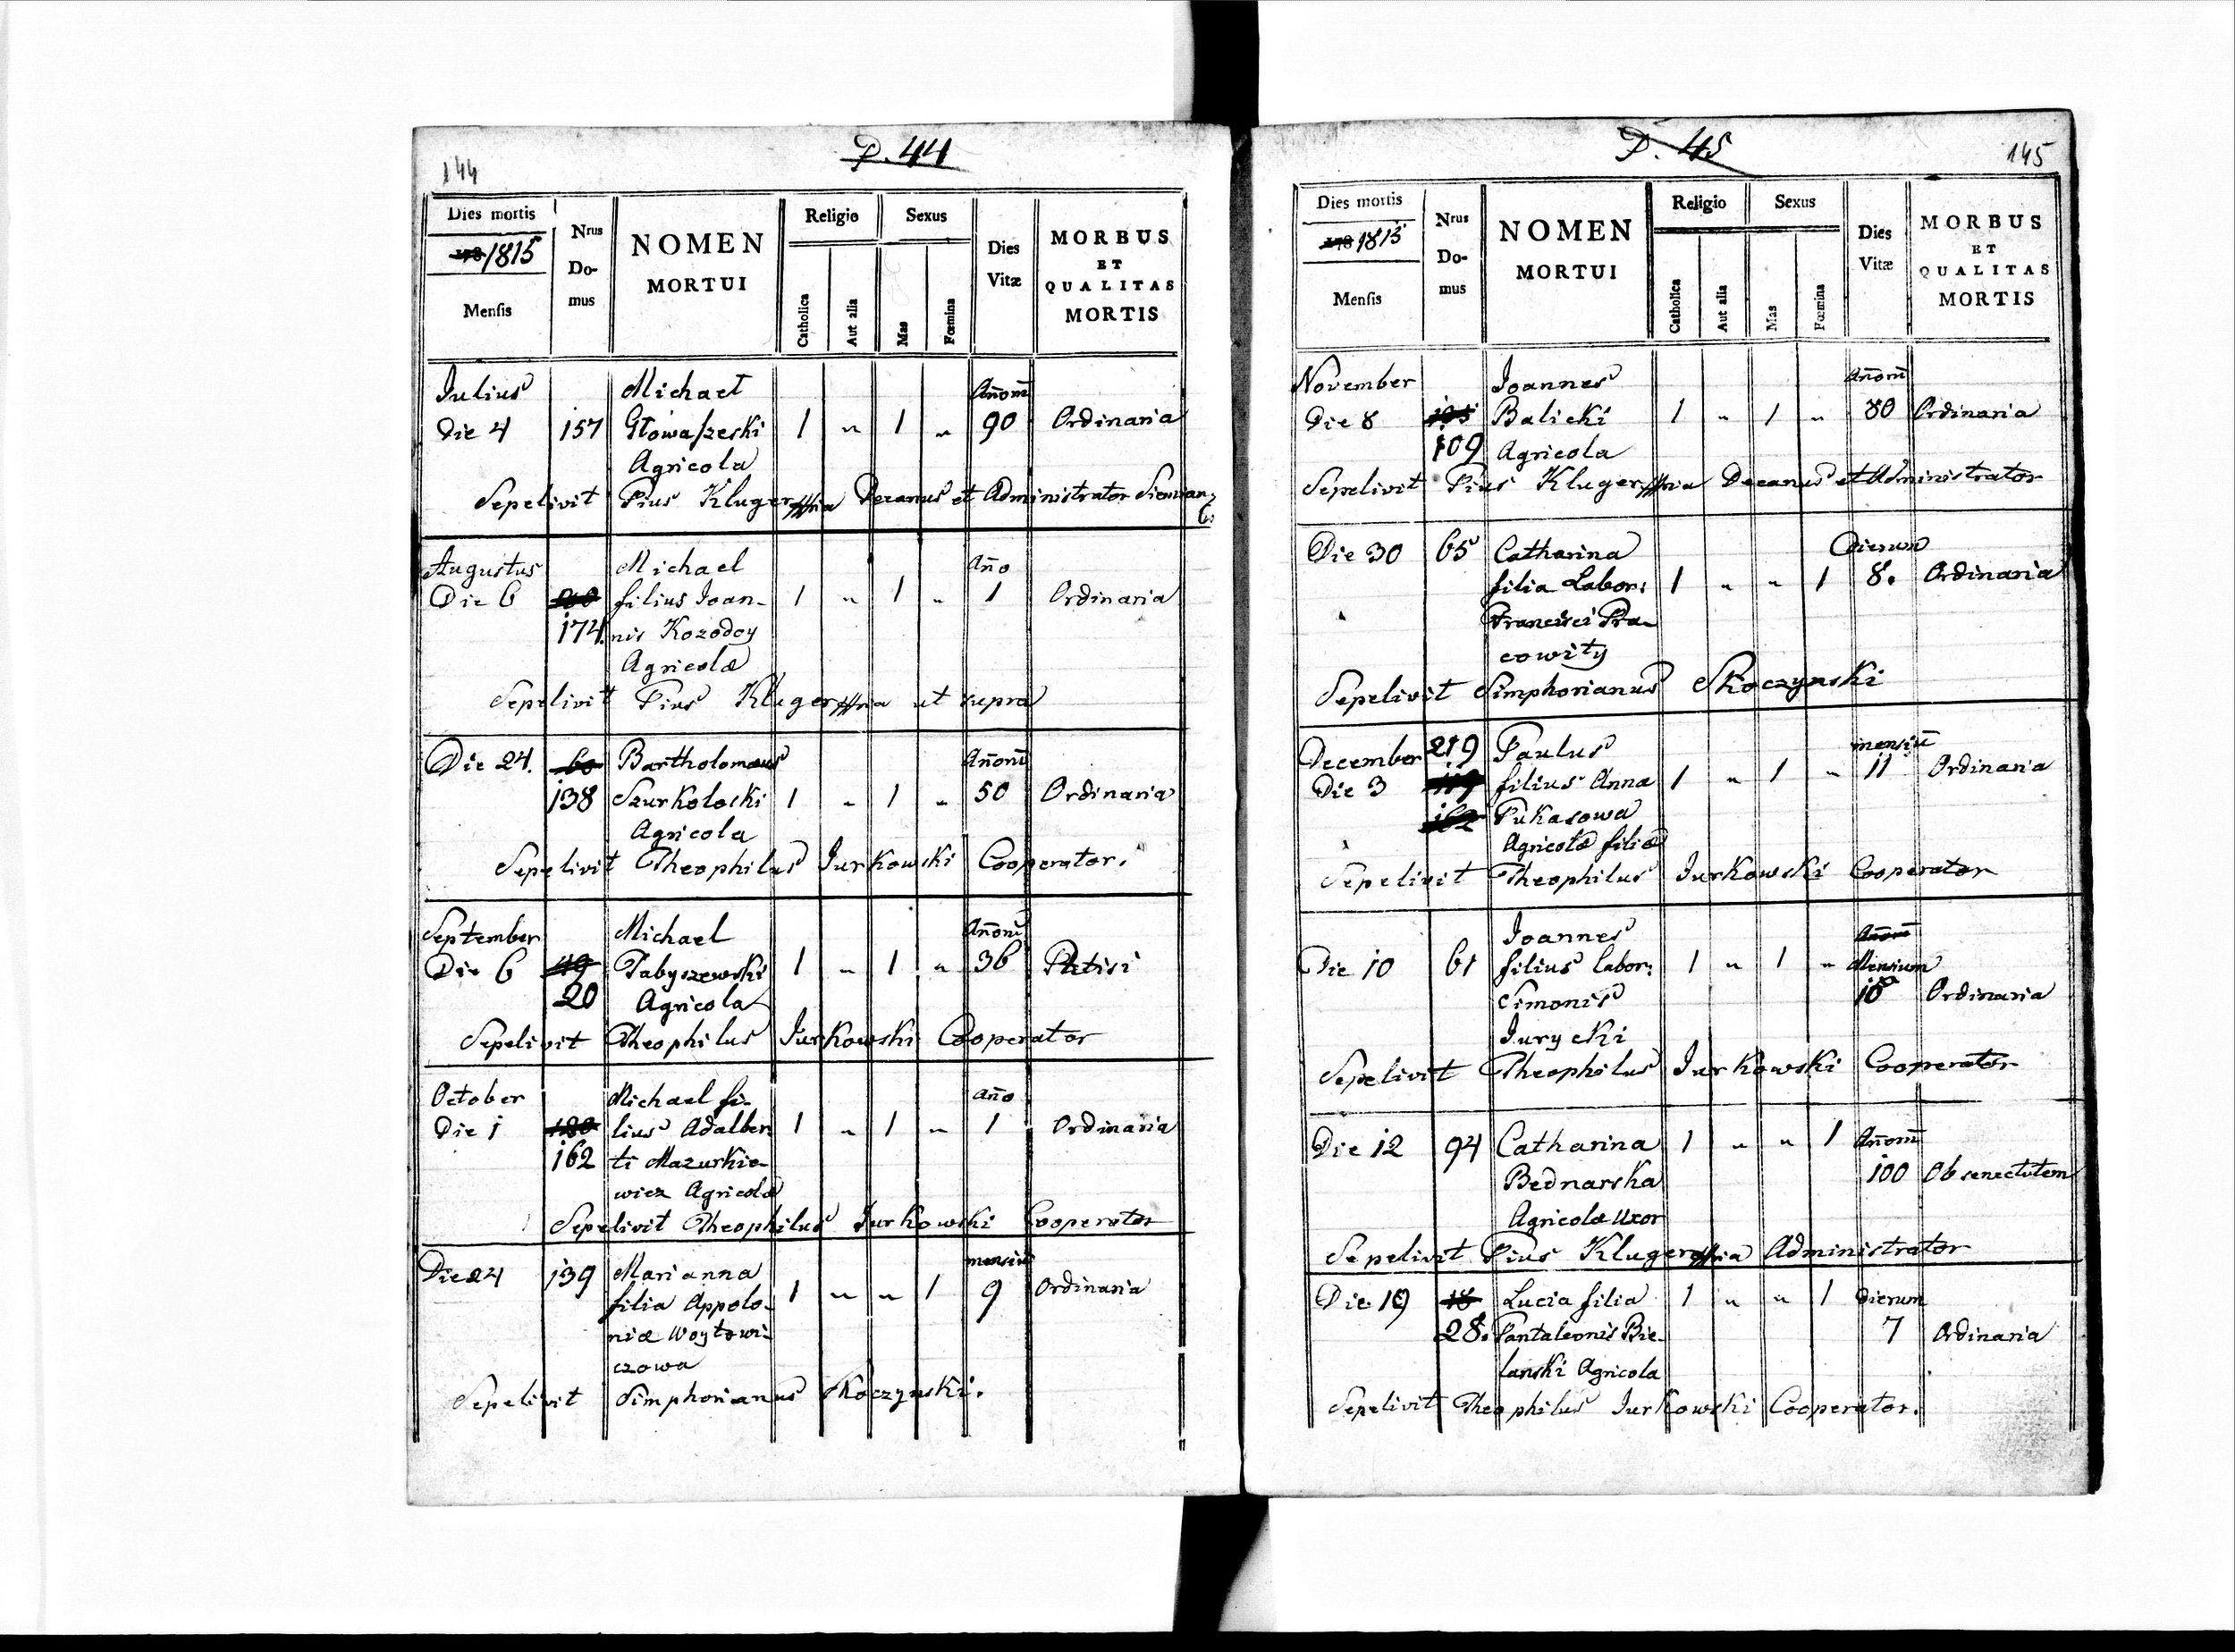 144
P. 44
Dies mortis
1815
Mensis
Nrus
Do-
mus
NOMEN
MORTUI
Religio
Catholica
Aut alia
Sexus
Mas
Fœmina
Dies
Vitæ
MORBUS
ET
QUALITAS
MORTIS
Julius Michael Añom̄
Die 4 157 Głowaszeski 1 „ 1 „ 90 Ordinaria
Agricola
Sepelivit Pius Kluger Decanus et Administrator
Augustus Michael Año
Die 6 filius Joan- 1 „ 1 „ 1 Ordinaria
174. nis Kozodoy
Agricolæ
Sepelivit Pius Kluger ut supra
Die 24. 60 Bartholomæus Añom̄
138 Szurkoloski 1 „ 1 „ 50 Ordinaria
Agricola
Sepelivit Theophilus Jurkowski Cooperator.
September Michael Añom̄
Die 6 49 Tabyszewski 1 „ 1 „ 36 Phtisi
20 Agricola
Sepelivit Theophilus Jurkowski Cooperator
October Michael fi- Año
Die 1 lius Adalber 1 „ 1 „ 1 Ordinaria
162 ti Mazurkie-
wicz Agricolæ
Sepelivit Theophilus Jurkowski Cooperator
Die 24 139 Marianna mensiū
filia Appolo- 1 „ „ 1 9 Ordinaria
niæ Woytowi-
czowa
Sepelivit Simphorianus Skoczynski.
P. 45
145
Dies mortis
1815
Mensis
Nrus
Do-
mus
NOMEN
MORTUI
Religio
Catholica
Aut alia
Sexus
Mas
Fœmina
Dies
Vitæ
MORBUS
ET
QUALITAS
MORTIS
November Joannes Añom̄
Die 8 Balicki 1 „ 1 „ 80 Ordinaria
109 Agricola
Sepelivit Pius Kluger Decanus et Administrator
Die 30 65 Catharina Dierum
filia Labor: 1 „ „ 1 8. Ordinaria
Francisci Pra-
cowity
Sepelivit Simphorianus Skoczynski
December 219 Paulus mensiū
Die 3 119 filius Anna 1 „ 1 „ 11 Ordinaria
162 Pukasowa
Agricolæ filiæ
Sepelivit Theophilus Jurkowski Cooperator
Joannes Añom̄
Die 10 61 filius labor: 1 „ 1 „ Mensium
Simonis 18 Ordinaria
Jurycki
Sepelivit Theophilus Jurkowski Cooperator
Die 12 94 Catharina 1 „ „ 1 Añom̄
Bednarska 100 Ob senectutem
Agricolæ uxor
Sepelivit Pius Kluger Administrator
Die 19 18 Lucia filia 1 „ „ 1 Dierum
28. Pantaleonis Bie- 7 Ordinaria
lanski Agricola
Sepelivit Theophilus Jurkowski Cooperator.